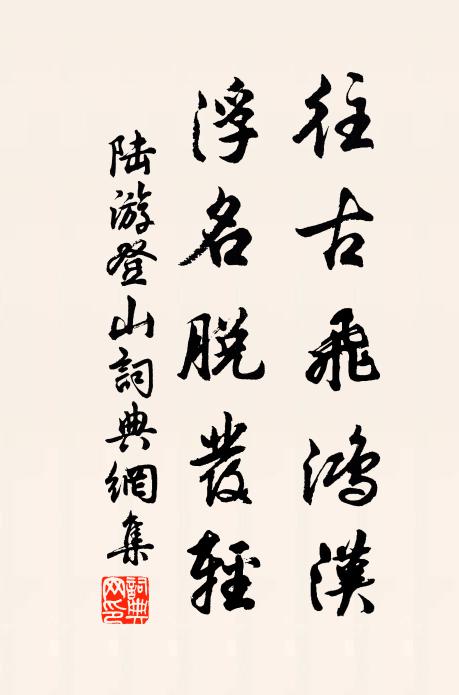 往古飛鴻漠
浮名脫髮輕
陆游登山詞典網集
詞典網印